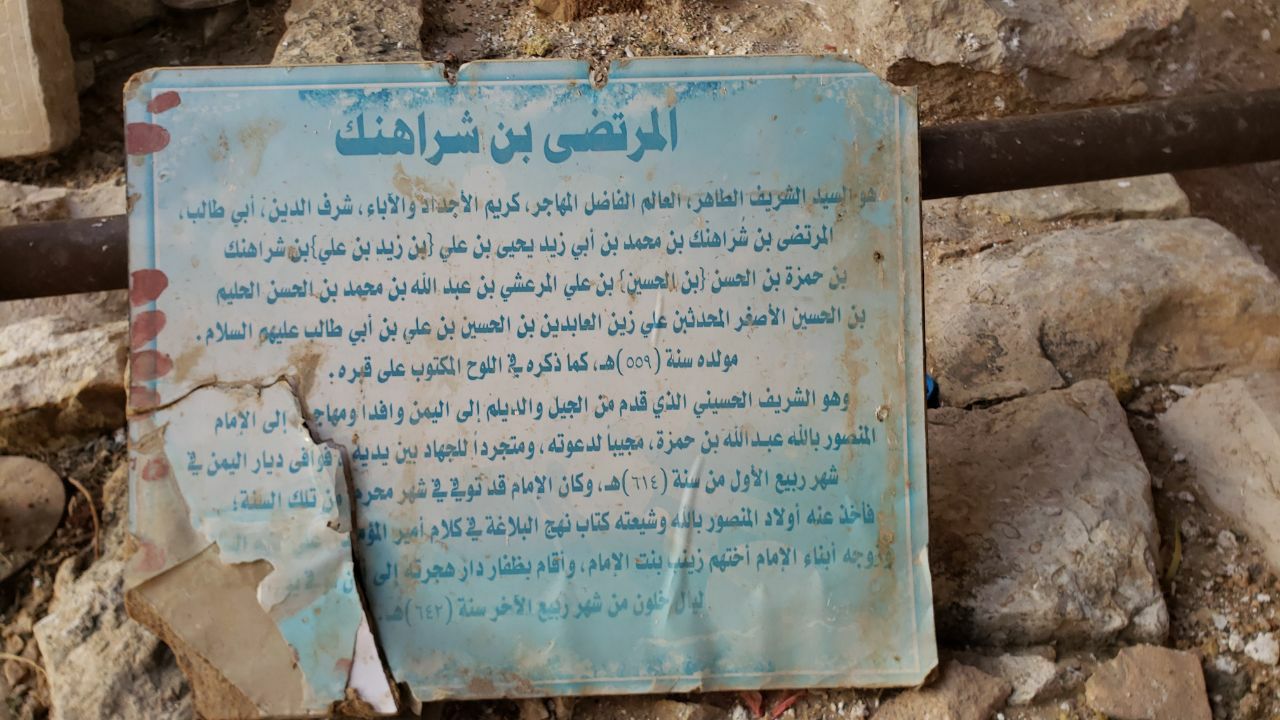 المرتضى بن شراهنك
هو السيد الشريف الطاهر، العالم الفاضل المهاجر، كريم الأجداد والآباء، شرف الدين، أبي طالب،
المرتضى بن شُراهنك بن محمد بن أبي زيد يحيى بن علي {بن زيد بن علي}بن شراهنك
بن حمزة بن الحسن {بن الحسين} بن علي المرعشي بن عبد الله بن محمد بن الحسن الحليم
بن الحسين الأصغر المحدثين علي زين العابدين بن الحسين بن علي بن أبي طالب عليهم السلام.
مولده سنة (٥٥٩)هـ، كما ذكره في اللوح المكتوب على قبره.
وهو الشريف الحسيني الذي قدم من الجيل والديلم إلى اليمن وافدا ومهاجر إلى الإمام
المنصور بالله عبد الله بن حمزة، مجيباً لدعوته، ومتجردا للجهاد بين يديه فوافى ديار اليمن في
شهر ربيع الأول من سنة (٦١٤)هـ، وكان الإمام قد توفي في شهر محرم من تلك السنة؛
فأخذ عنه أولاد المنصور بالله وشيعته كتاب نهج البلاغة في كلام أمير
وزوجه أبناء الإمام أختهم زينب بنت الإمام، وأقام بظفار دار هجرته إلى
ليال خلون من شهر ربيع الآخر سنة (٦٤٢)هـ.